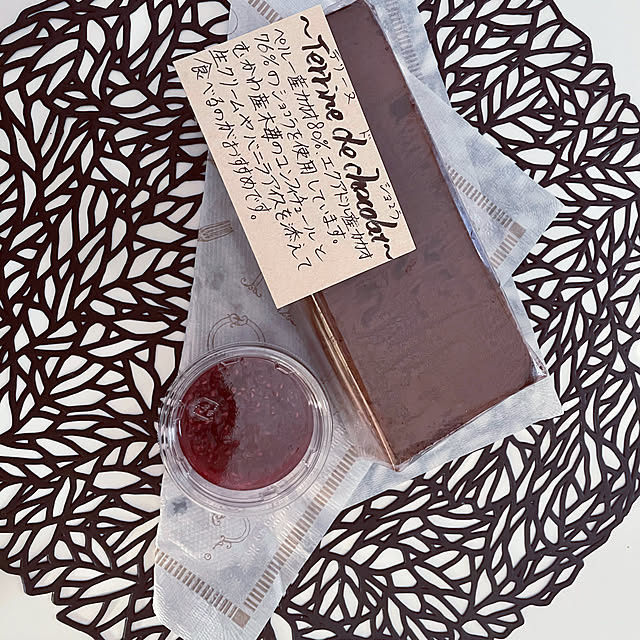 ~Terrine de chocolat~
テリーヌ ド ショコラ
ペルー産カカオ80% エクアドル産カカオ
76%のショコラを使用しています。
むかわ産木苺のコンフィチュールと
生クリームやバニラアイスを添えて
食べるのがおすすめです。